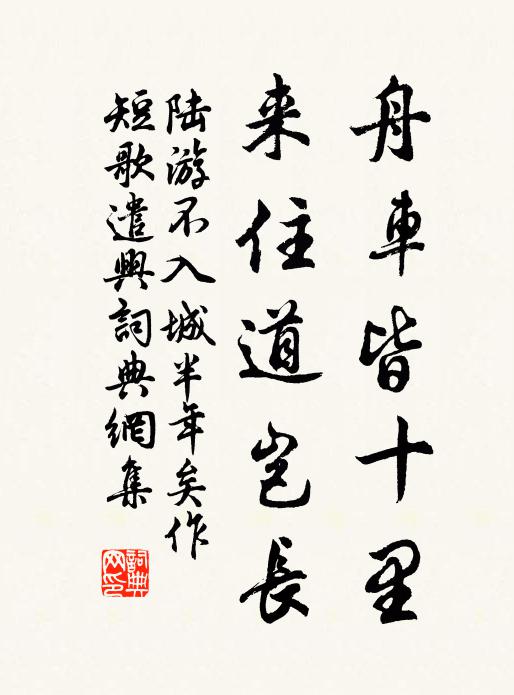 舟車皆十里
来住道豈長
陸游不入城半年矣作
短歌遣興詞典網集
詞典
网印